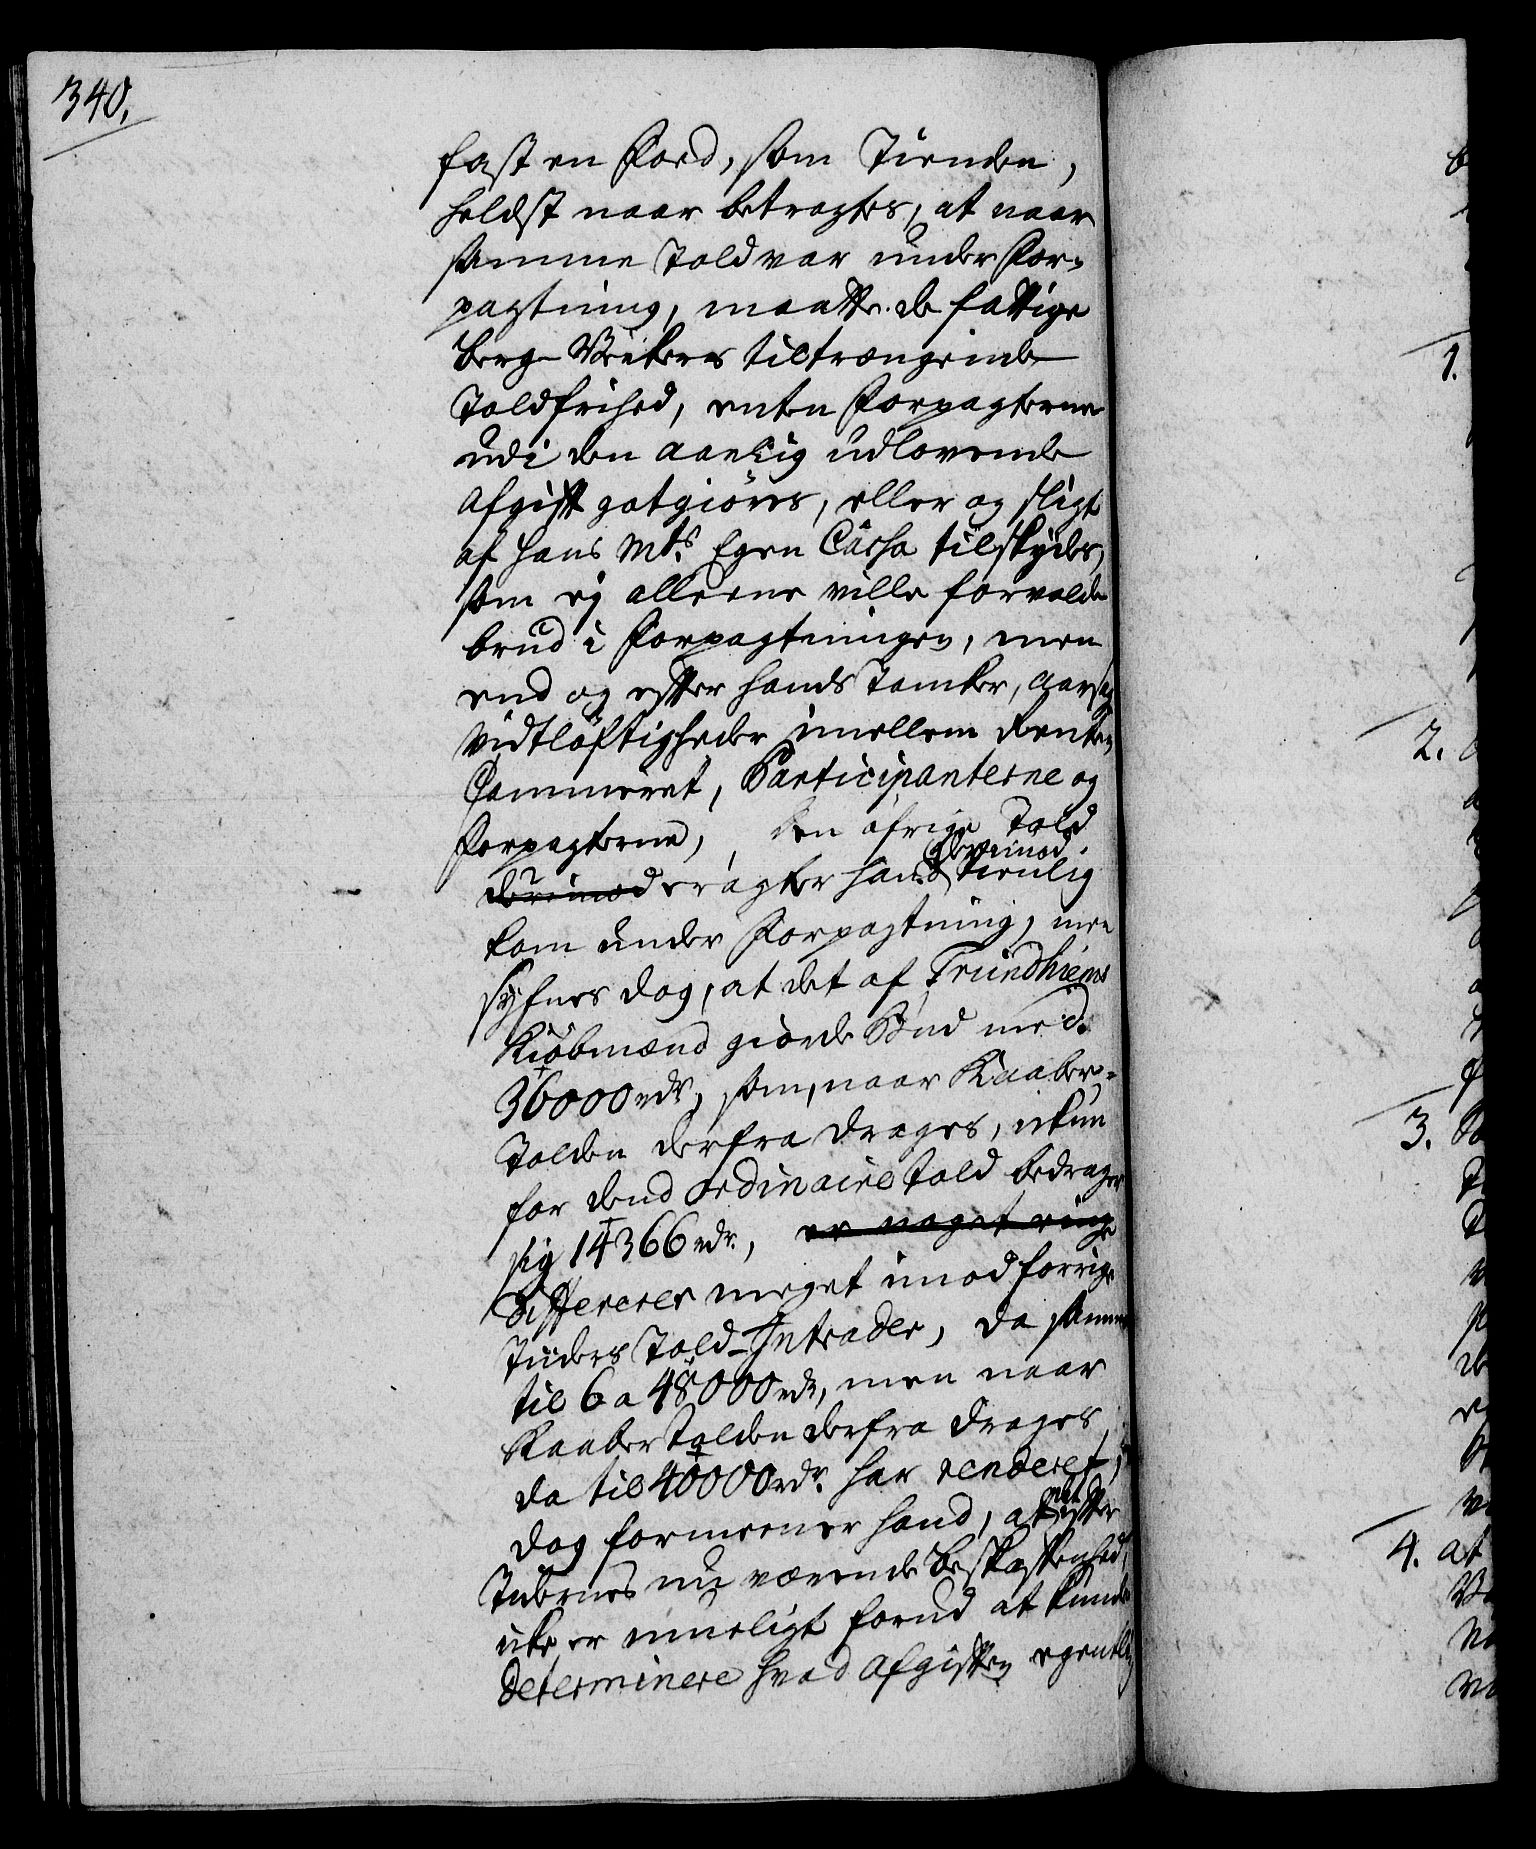 340.
fast en Foed, som Tienden,
heldst naar betragtes, at naar
samme Told var under For-
pagtning, maatte de fattige
Berg-Werkers tiltrængende
Toldfrihed, enten Forpagterne
udi den aarlig udlovende
afgift gotgiøres, eller og sligt
af Hans Mts. Egen Cassa tilskydes,
som ej alleene ville forvolde
brud i Forpagtningen, men
end og efter hands Tanker, aarsag
vidtløftigheder imellem Rente-
Cammeret, Participanterne og
Forpagterne, den øfrige Told
derimod eragter hand derimod tienlig
kom under Forpagtning, men
synes dog, at det af Trundhiems
Kiøbmænd giorde Bud med
36000 rdr, som, naar Kaaber-
Tolden derfra drages, ikun
for dend ordinaire Told bedrager
sig 14366 rdr., er noget ringe
differerer meget imod forrige
Tiiders Told-Intrader, da samme
til 6 a 48000 rdr, men naar
Kaaber Tolden derfra drages,
da til 40000 rdr. har renderet,
dog formeener hand, at efter
Tidernes nu værende Beskaffenhed,
ike er mueligt forud at kunde
determinere hvad Afgiften egentlig
1.
2.
3.
4. at